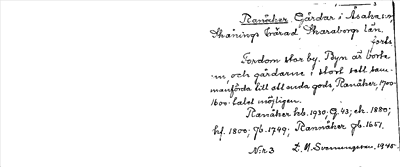 Ranåker. Gårdar i Åsaka s:n,
Skånings härad, Skaraborgs län.
forts
Fordom stor by. Byn är borta
nu, och gårdarne i stort sett sam-
manförda till ett enda gods, Ranåker, 1700-
1600-talet möjligen.
Ranåker hb. 1930, G. 43; ek. 1880;
hf. 1800; jb. 1749; Rannåker jb. 1651.
N:r 3 L. M. Svenungsson. 1945.